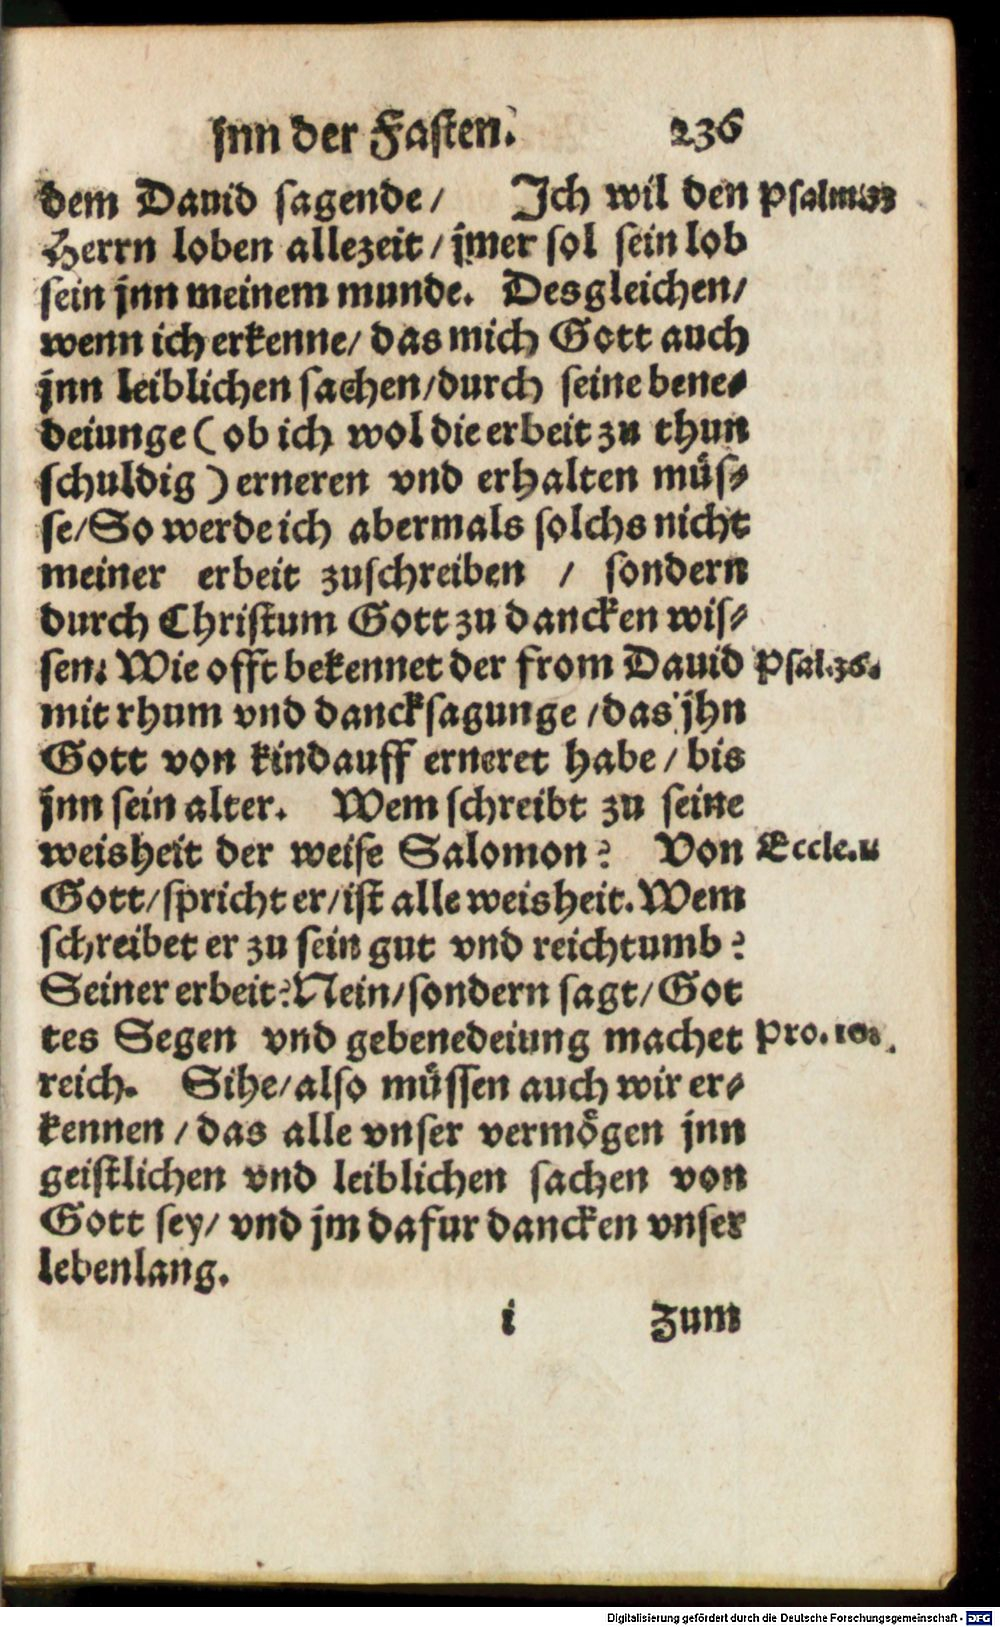 jnn der Fasten. 236
dem Dauid sagende/ Ich wil den Psalm.33
Herrn loben allezeit/ jmer sol sein lob
sein jnn meinem munde. Desgleichen/
wenn ich erkenne/ das mich Gott auch
jnn leiblichen sachen/durch seine bene-
deiunge (ob ich wol die erbeit zu thun
schuldig) erneren vnd erhalten müs-
se/So werde ich abermals solchs nicht
meiner erbeit zuschreiben / sondern
durch Christum Gott zu dancken wis-
sen. Wie offt bekennet der from Dauid Psal.36.
mit rhum vnd dancksagunge /das jhn
Gott von kindauff erneret habe/ bis
jnn sein alter. Wem schreibt zu seine
weisheit der weise Salomon? Von Eccle.
Gott/spricht er/ist alle weisheit. Wem
schreibet er zu sein gut vnd reichtumb?
Seiner erbeit? Nein/sondern sagt/Got
tes Segen vnd gebenedeiung machet Pro. 10.
reich. Sihe/also müssen auch wir er-
kennen /das alle vnser vermögen jnn
geistlichen vnd leiblichen sachen von
Gott sey/ vnd jm dafur dancken vnser
lebenlang.
i Zum
Digitalisierung gefördert durch die Deutsche Forschungsgemeinschaft - DFG